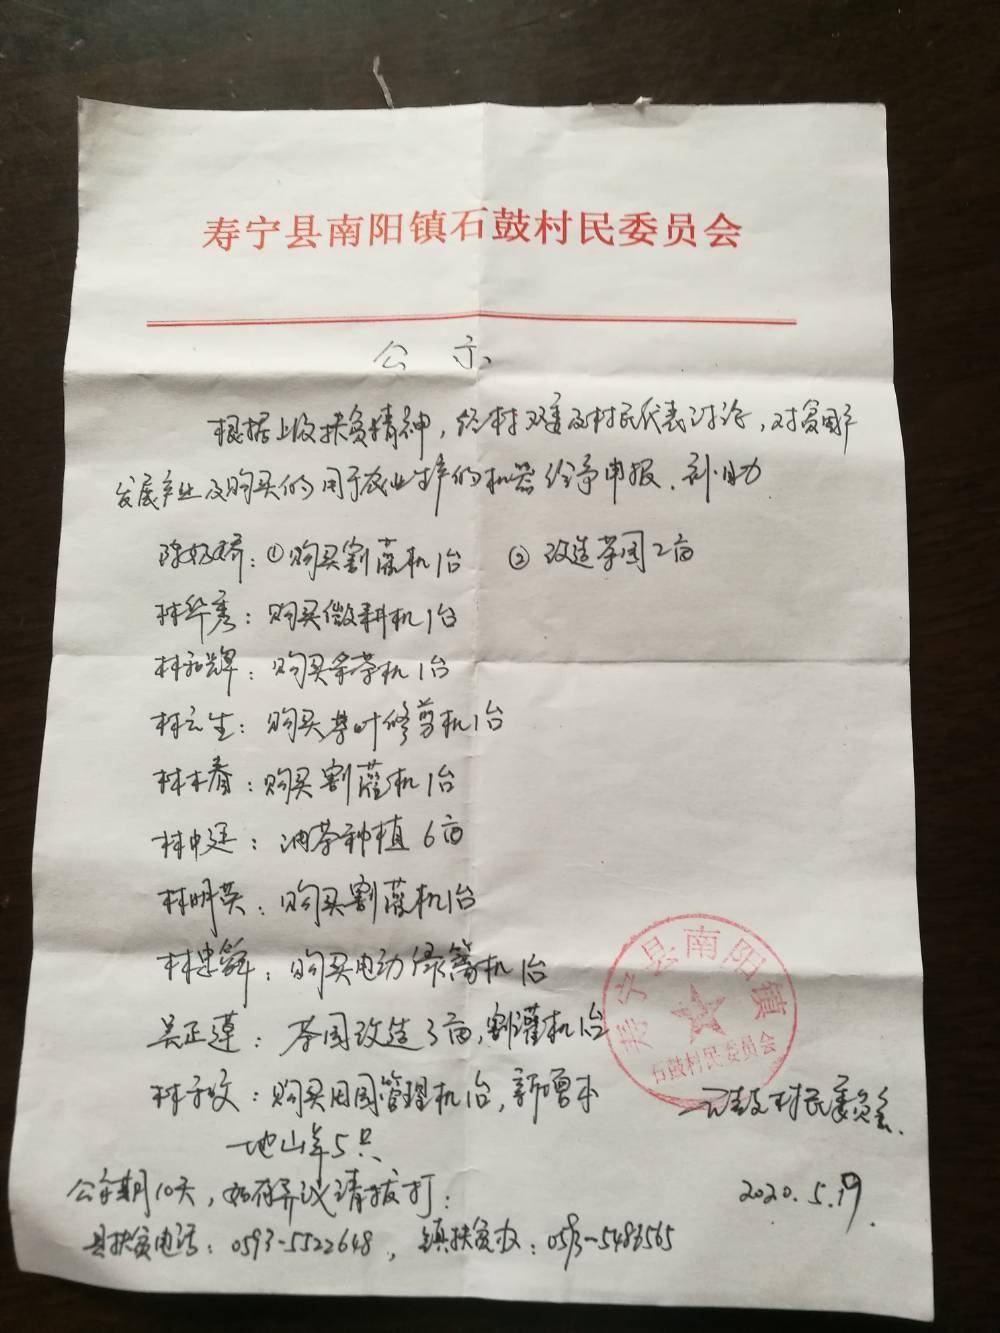 寿宁县南阳镇石鼓村民委员会
公示
根据上级扶贫精神，经村两委及村民代表讨论，对贫困户
发展产业及购买的用于农业生产的机器给予申报、补助
陈好娇：①购买割灌机1台 ②改造茶园2亩
林华秀：购买微耕机1台
林和辉：购买采茶机1台
林云生：购买茶叶修剪机1台
林木春：购买割灌机1台
林中廷：油茶种植6亩
林明英：购买割灌机1台
林忠辉：购买电动绿篱机1台
吴正莲：茶园改造3亩，割灌机1台
林子政：购买田园管理机1台，新增本
地山羊5只
石鼓村民委员会
公示期10天，如有异议请拨打：
2020.5.19.
县扶贫电话：0593-5522648，镇扶贫办：0593-5483565
寿宁县南阳镇
石鼓村民委员会